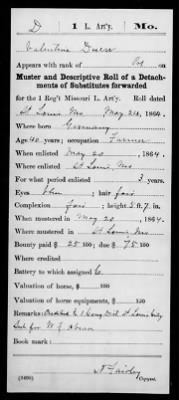 D | 1 L. Art'y. | Mo.
Valentine
Appears with rank of Pvt. on
Muster and Descriptive Roll of a Detachments of Substitutes forwarded
for the 1 Reg't Missouri L. Art'y. Roll dated
St Louis Mo May 26, 1864.
Where born Germany
Age 40 years; occupation Farmer
When enlisted May 20, 1864.
Where enlisted St Louis, Mo
For what period enlisted 3 years.
Eyes ; hair fair
Complexion fair; height 5 ft. 7 in.
When mustered in May 20, 1864.
Where mustered in St Louis Mo
Bounty paid $ 25 100; due $ 75 100
Where credited
Battery to which assigned
Valuation of horse, $ 100
Valuation of horse equipments, $ 100
Remarks: Credited to 1 Cong Dist St Louis
Sub for W.
Book mark:
(468b) Copyist.